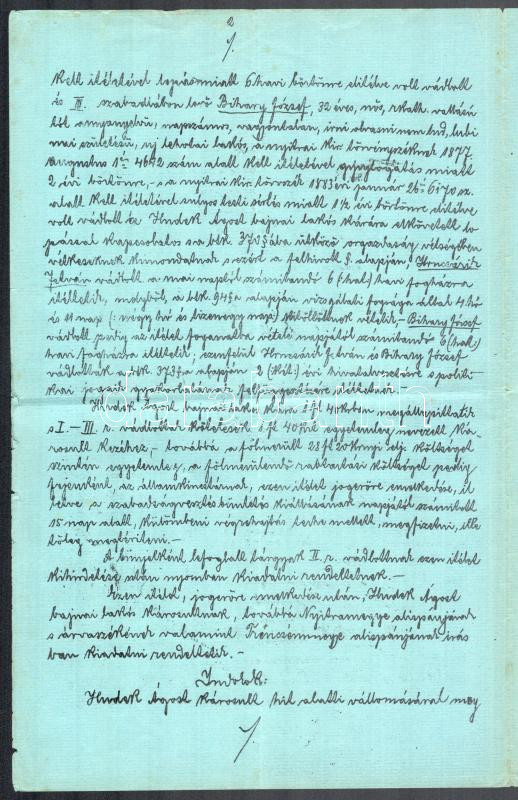 2
kelt itéletével lopás miatt 6 havi börtönre elitélve volt vádlott
és III. szabadlábon levő Bihary József, 32 éves, nős, r. kath. vallásu
napszámos, vagyontalan, irni olvasni nem tud,
lakós, a nyitrai kir törvényszéknek 1877
augusztus 1ről 4642 szám alatt kelt itéletével gyujtogatás miatt
2 évi börtönre, – s a nyitrai kir. törvszék 1883 évi január 26ról 670 sz.
alatt kelt itéletével sulyos testi sértés miatt 1½ évi börtönre elitélve
volt vádlott Hudek Ágost bajnai lakós kárára elkövetett lo
pással kapcsolatos s a btk. 370 §ába ütköző orgazdaság vétségében
vétkeseknek kimondatnak s ezért a felhivott §. alapján, Hrncsárik
István vádlott a mai naptól számitandó 6 (:hat:) havi fogházra
itéltetik, melyből, a btk. 94§a alapján vizsgálati fogsága által 4 hó
és 11 nap (: négy hó és tizenegy nap:) kitöltöttnek vétetik, – Bihary József
vádlott pedig az itélet foganatba vételé napjától számitandó 6 (:hat:)
havi fogházra itéltetik, ezenfelül Hrncsárik István és Bihary József
vádlottak a btk. 373§a alapján 2 (:két:) évi hivatalvesztésre s politi
kai jogaik gyakorlatának felfüggesztésére itéltetnek.
Hudek Ágost bajnai lakós kára 1 ft 40 krban megállapittatik
s I. – III. r. vádlottak kötelesek 1 ft 40 krt egyetemleg, nevezett ká-
rosult kezéhez, – továbbá a fölmerült 28 ft 20 krnyi elj. költséget
szintén egyetemleg, a fölmerülendő rabtartási költséget pedig
fejenként, az államkincstárnak, ezen itélet jogerőre emelkedése, il
letve a szabadságvesztés büntetés kiállásának napjától számitott
15 nap alatt, különbeni végrehajtás terhe mellett, megfizetni, ille
tőleg megtériteni. –
A bünjelként lefoglalt tárgyak II. r. vádlottnak ezen itélet
kihirdetése után nyomban kiadatni rendeltetnek. –
Ezen itélet, jogerőre emelkedése után, Hudek Ágost
bajnai lakós károsultnak, továbbá Nyitramegye alispánjának
s árvaszékének valamint Trencsénmegye alispánjának irás
ban kiadatni rendeltetik. –
Indokok:
Hudek Ágost károsult hit alatti vallomásával meg